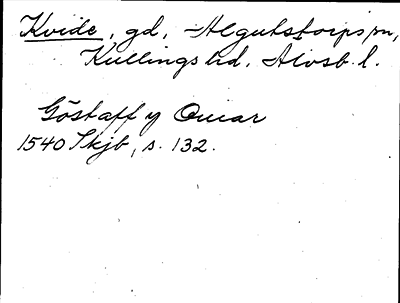 Kvide, gd, Algutstorps sn,
Kullings hd, Älvsb. l.
Göstaff y Quiar
1540 Skjb, s. 132.